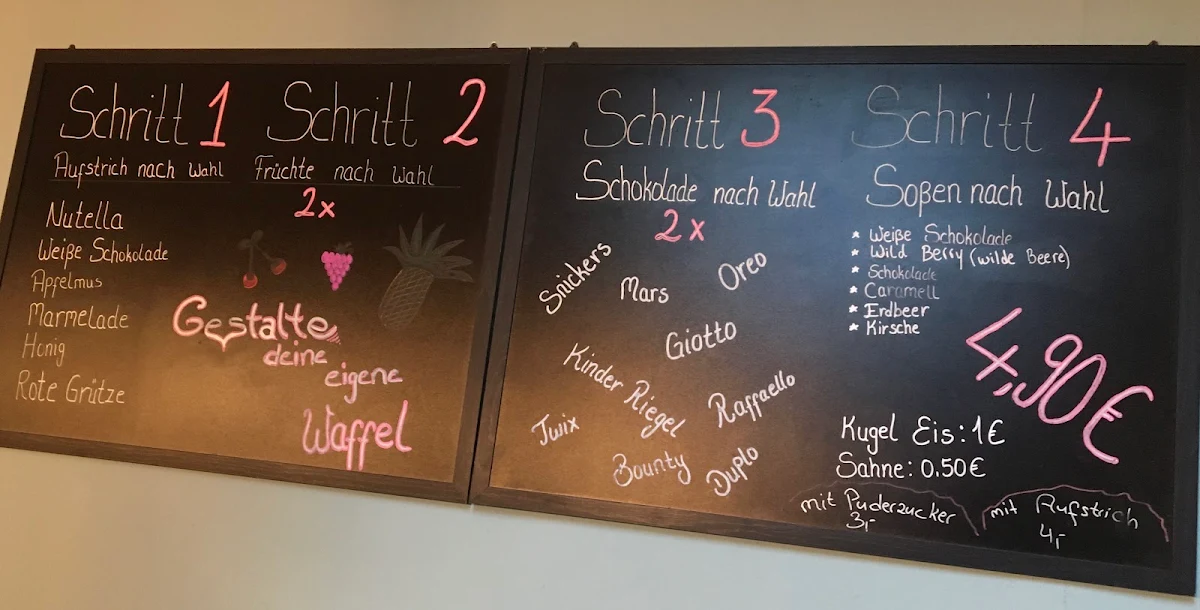 Schritt 1
Aufstrich nach Wahl
Nutella
Weiße Schokolade
Apfelmus
Marmelade
Honig
Rote Grütze
Schritt 2
Früchte nach Wahl
2x
Gestalte
deine
eigene
Waffel
Schritt 3
Schokolade nach Wahl
2x
Snickers
Mars
Oreo
Giotto
Kinder Riegel
Raffaello
Twix
Bounty
Duplo
Schritt 4
Soßen nach Wahl
* Weiße Schokolade
* Wild Berry (wilde Beere)
* Schokolade
* Caramell
* Erdbeer
* Kirsche
4,90€
Kugel Eis: 1€
Sahne: 0.50€
mit Puderzucker
3,-
mit Aufstrich
4,-